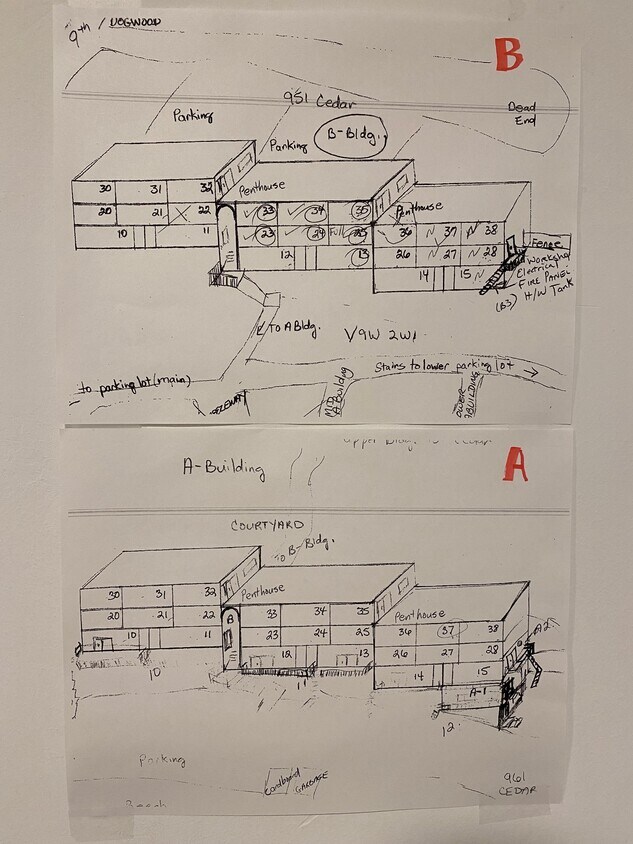 9th / DOGWOOD
B
951 Cedar
Dead
End
Parking
B-Bldg.
Parking
Penthouse
30 31 32
20 21 22
10 11
33 34 35
23 24 Full 25
12 13
Penthouse
36 37 38
26 27 28
14 15
Fence
Workshop
Electrical
FIRE PANEL
H/W Tank
(B3)
TO A Bldg.
V9W 2W1
Stairs to lower parking lot
to parking lot (main)
MID
A Building
A-Building
A
COURTYARD
TO B-Bldg.
Penthouse
30 31 32
20 21 22
10 11
B
33 34 35
23 24 25
12 13
Penthouse
36 37 38
26 27 28
14 15
A2
A-1
10
11
12
Parking
Cardboard
GARBAGE
961
CEDAR
Beach